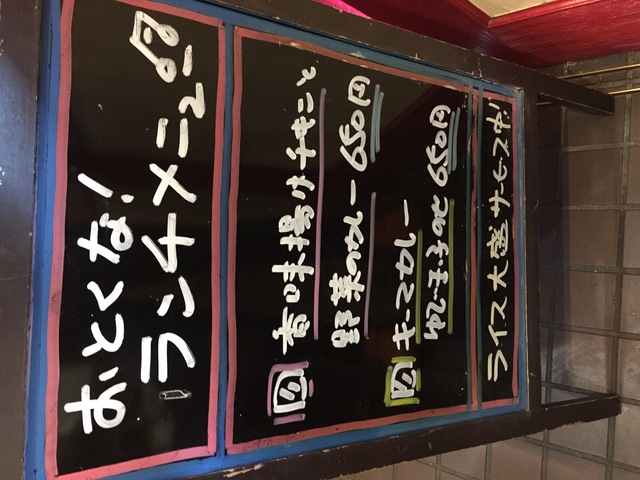 おとくな!
ランチメニュー
香味揚げチキンと
野菜のカレー 650円
キーマカレー
ゆで玉子のせ 650円
ライス大盛サービス中!!